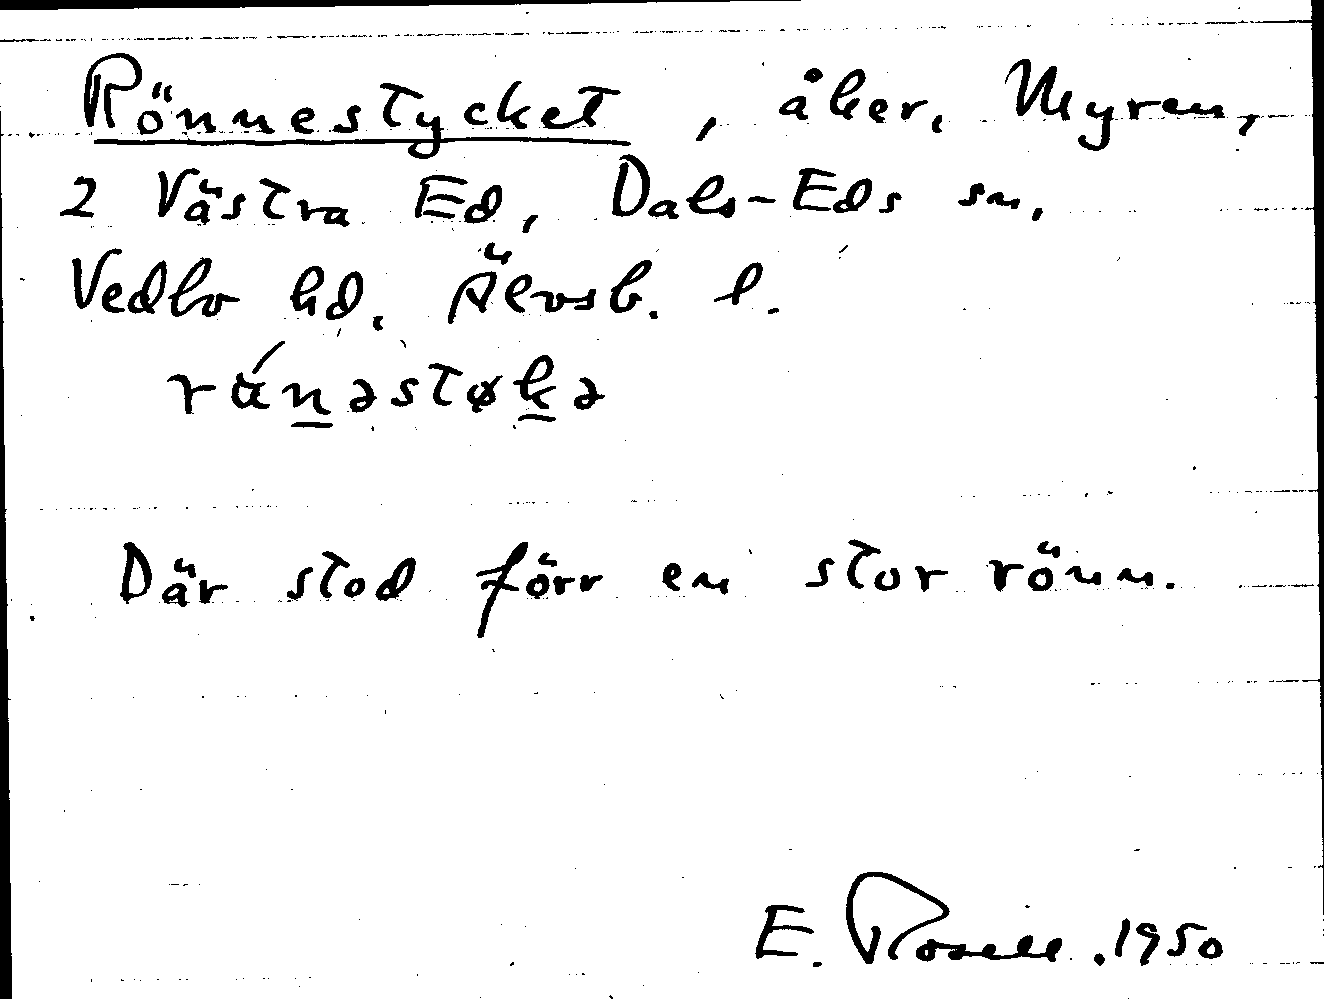 Rönnestycket, åker, Myren,
2 Västra Ed, Dals-Eds sn,
Vedbo hd. Älvsb. l.
Där stod förr en stor rönn.
E. Rosell. 1950